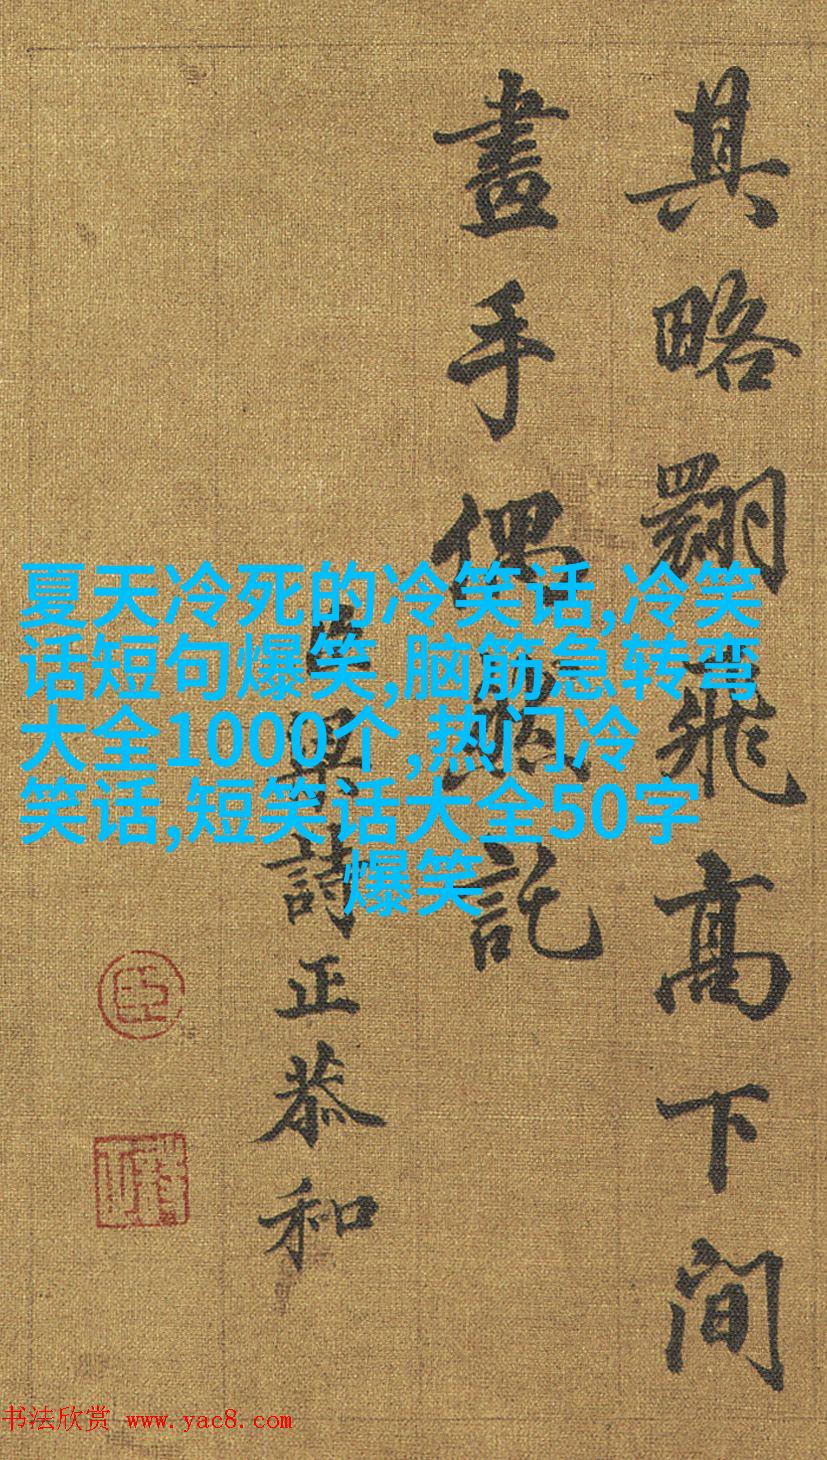 其略翾飛高下間
畫手偶託
臣梁詩正恭和
臣
夏天冷死的冷笑话,冷笑
话短句爆笑,脑筋急转弯
大全1000个,热门冷
笑话,短笑话大全50字
爆笑
书法欣赏 www.yac8.com